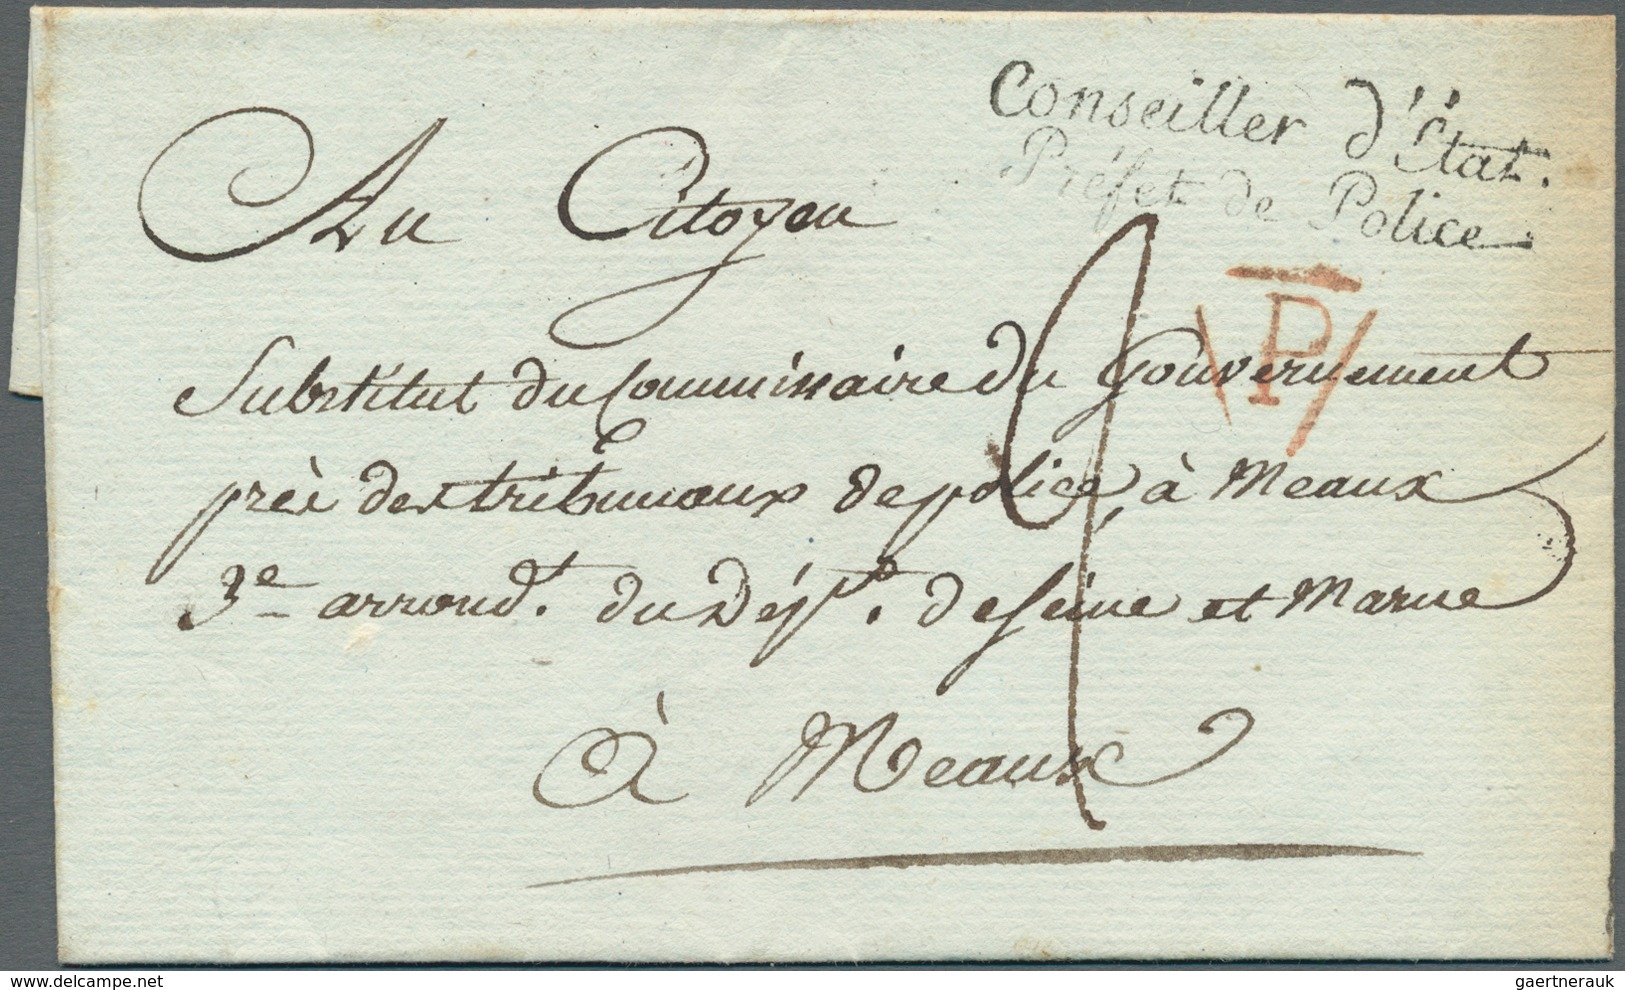 Conseiller d'État.
Préfet de Police
P
Au Citoyen
Substitut du Commissaire du Gouvernement
près des tribunaux de police, à Meaux
3e arrond.t du Dép.t de Seine et Marne
à Meaux
gaertnerauk